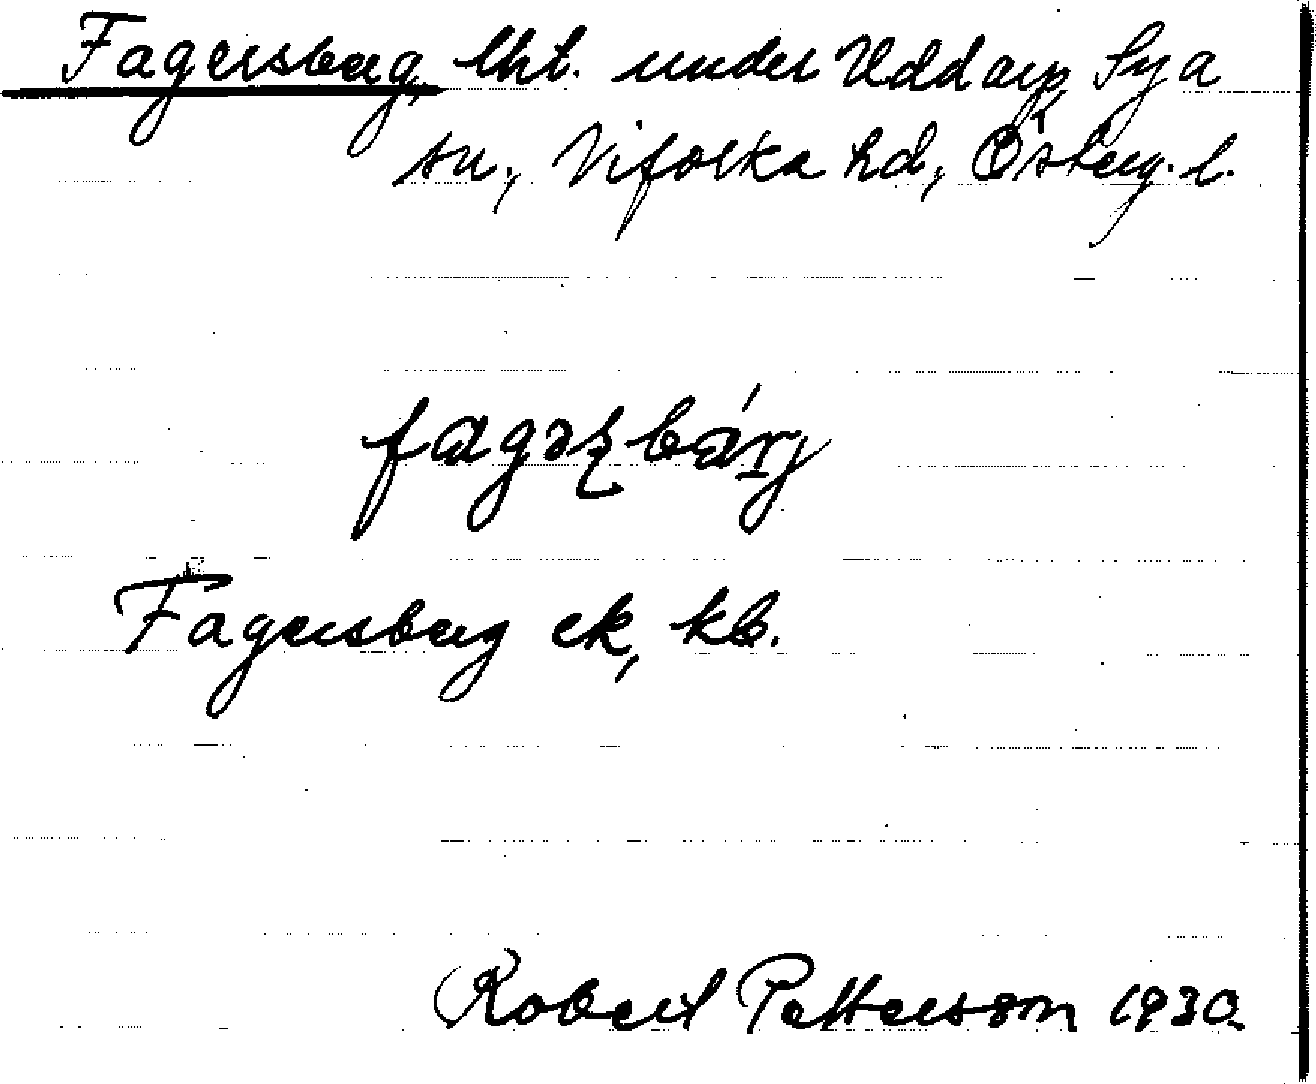 Fagersberg, lht. under Uddarp, Sya
sn, Vifolka hd, Österg. l.
fagəʂbárj
Fagersberg ek, kb.
Robert Petterson 1930